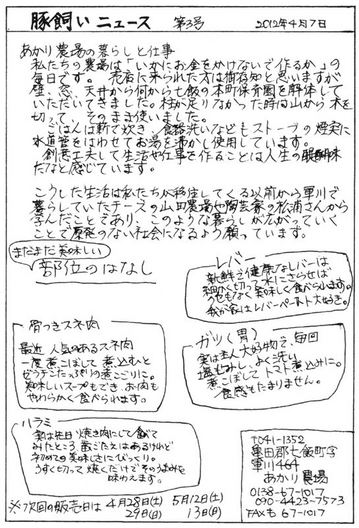 豚飼いニュース 第3号 2012年4月7日
あかり農場の暮らしと仕事
私たちの農場は「いかにお金をかけないで作るか」の
毎日です。売店に来られた方は御存知と思いますが
壁、窓、天井から何から七飯の本町保育園を解体して
いただいてきました。柱が足りなかった時は山から木を
切って、そのまま使いました。
ごはんは薪で炊き、食器洗いなどもストーブの煙突に
水道管をはわせてお湯を沸かし使用しています。
創意工夫して生活や仕事を作ることは人生の醍醐味
だなと感じています。
こうした生活は私たちが移住してくる以前から軍川で
暮らしていたチーズの山田農場や陶芸家の松浦さんから
学んだことであり、このような暮らしが広がっていく
ことで原発のない社会になるよう願っています。
まだまだ美味しい
部位のはなし
レバー
新鮮で健康なレバーは
細かく切って水にさらせば
クセもなく美味しく食べられます。
我が家はレバーペースト大好き。
骨つきスネ肉
最近人気のあるスネ肉
一度煮こぼして煮込むと
ゼラチンたっぷりの煮こごりに。
美味しいスープもでき、お肉も
やわらかく食べられます。
ガツ(胃)
実は主人大好物で、毎回
塩でもみ、よく洗い
煮こぼしてトマト煮込みに。
食感がたまりません。
ハラミ
私は先日焼き肉にして食べて
みたところ、歯ごたえはあるけれど
初めての美味しさにびっくり。
うすく切って焼くだけでそのうまみを
味わえます。
〒041-1352
亀田郡七飯町字
軍川464
あかり農場
0138-67-1017
090-4423-7573
FAXも67-1017
※次回の販売日は 4月28日(土) 5月12日(土)
29日(日) 13日(日)